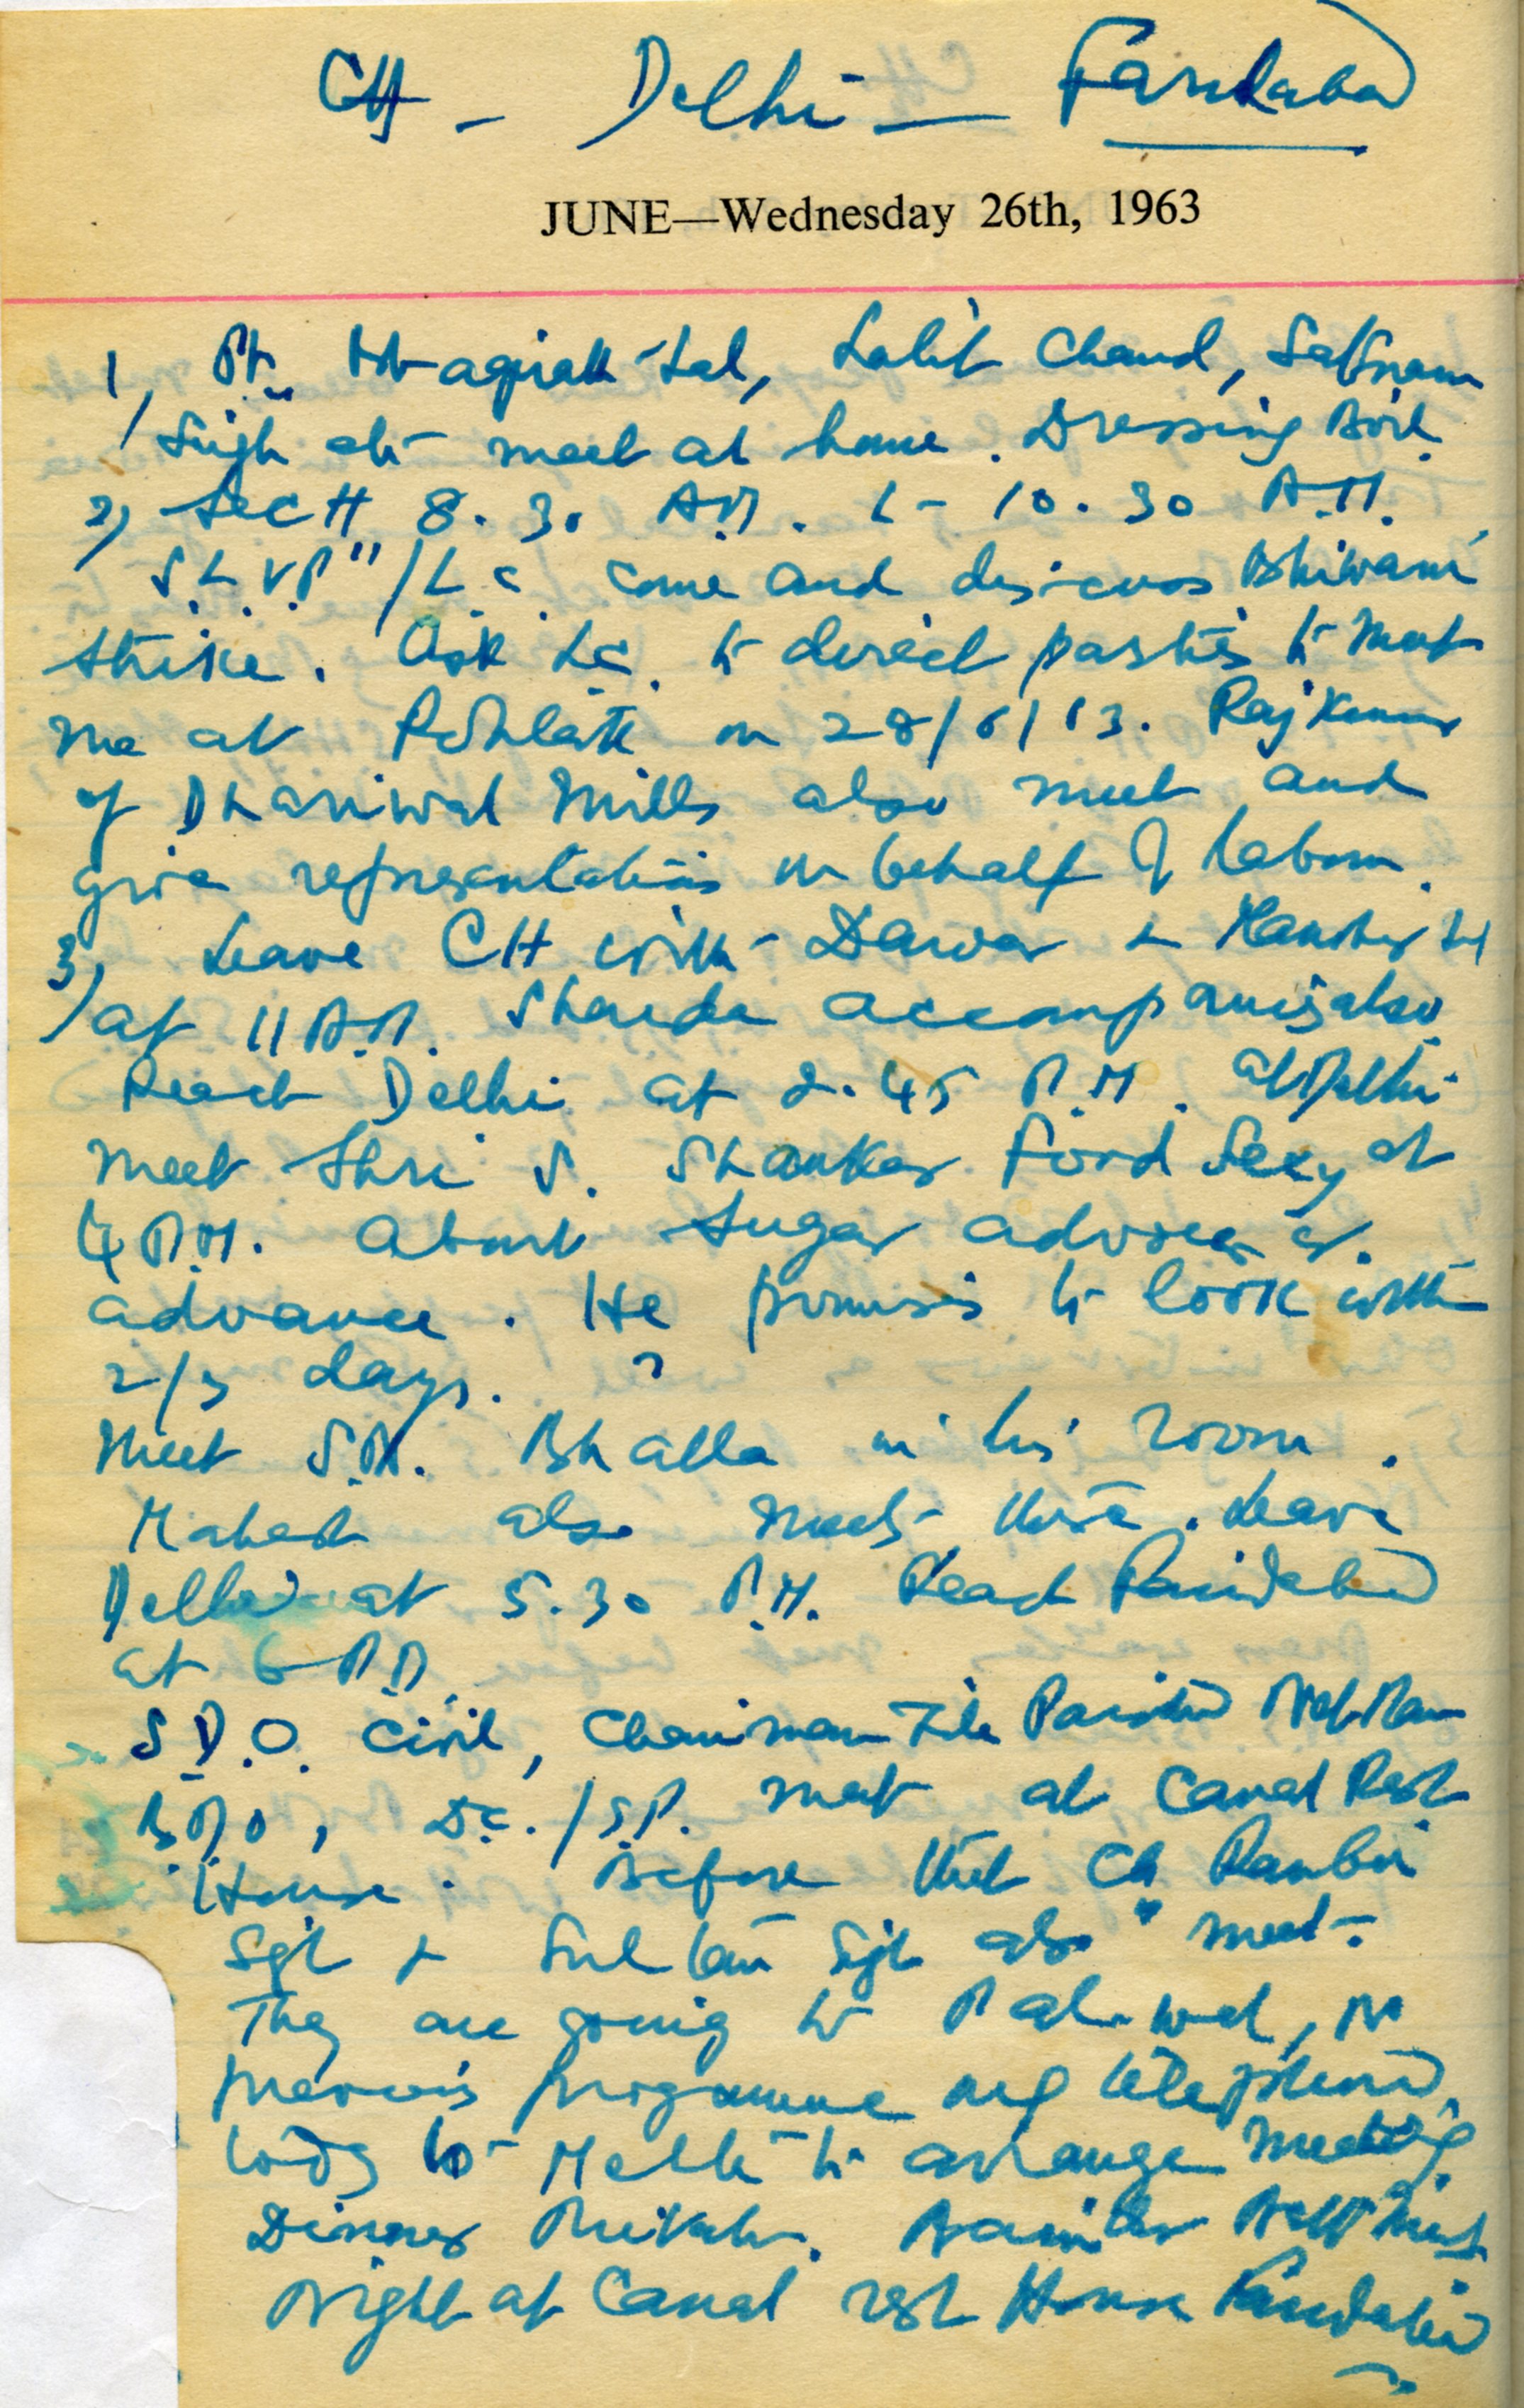 CH - Delhi - Faridabad
JUNE—Wednesday 26th, 1963
1) Pt. Bhagirath Lal, Lalit Chand, Satnam
Singh etc meet at home. Dressing
2) Sectt 8.30 A.M. to 10.30 A.M.
S.L.V.P"/L.C. come and discuss Bhiwani
strike. Ask L.C. to direct parties to meet
me at Rohtak on 28/6/63. Raj Kumar
of Dhariwal Mills also meet and
give representations on behalf of Labour.
3) Leave CH with Dawar &
at 11 A.M. Sharda accompanies also
Reach Delhi at 2.45 P.M. At Delhi
meet Shri S. Shanker Food Secy at
4 P.M. about Sugar
advance. He promises to look with
2/3 days. ?
Meet S.P. Bhalla in his room.
Mahesh also meets there. Leave
Delhi at 5.30 P.M. Reach Faridabad
at 6 P.M.
S.D.O. Civil, Chairman Zila Parishad
B.D.O, D.C./S.P. meet at Canal Rest
House. Before that Ch. Ranbir
Sgh & Sultan Sgh also meet.
They are going to Palwal, no
previous programme
to arrange meeting
Dinner
Night at Canal rest House Faridabad